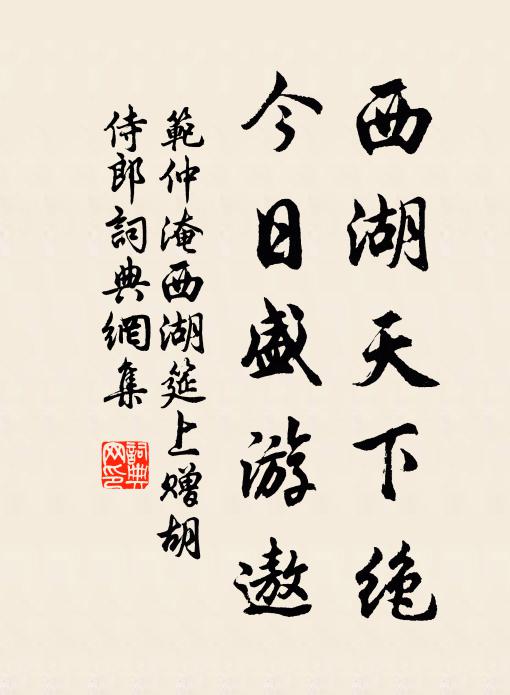 西湖天下絶
今日盛游遨
範仲淹西湖筵上贈胡
侍郎詞典網集
詞典
网印